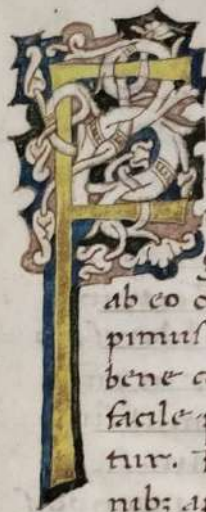 F
ab eo c
pimuſ
bene c
facile
tur.
nibꝫ a